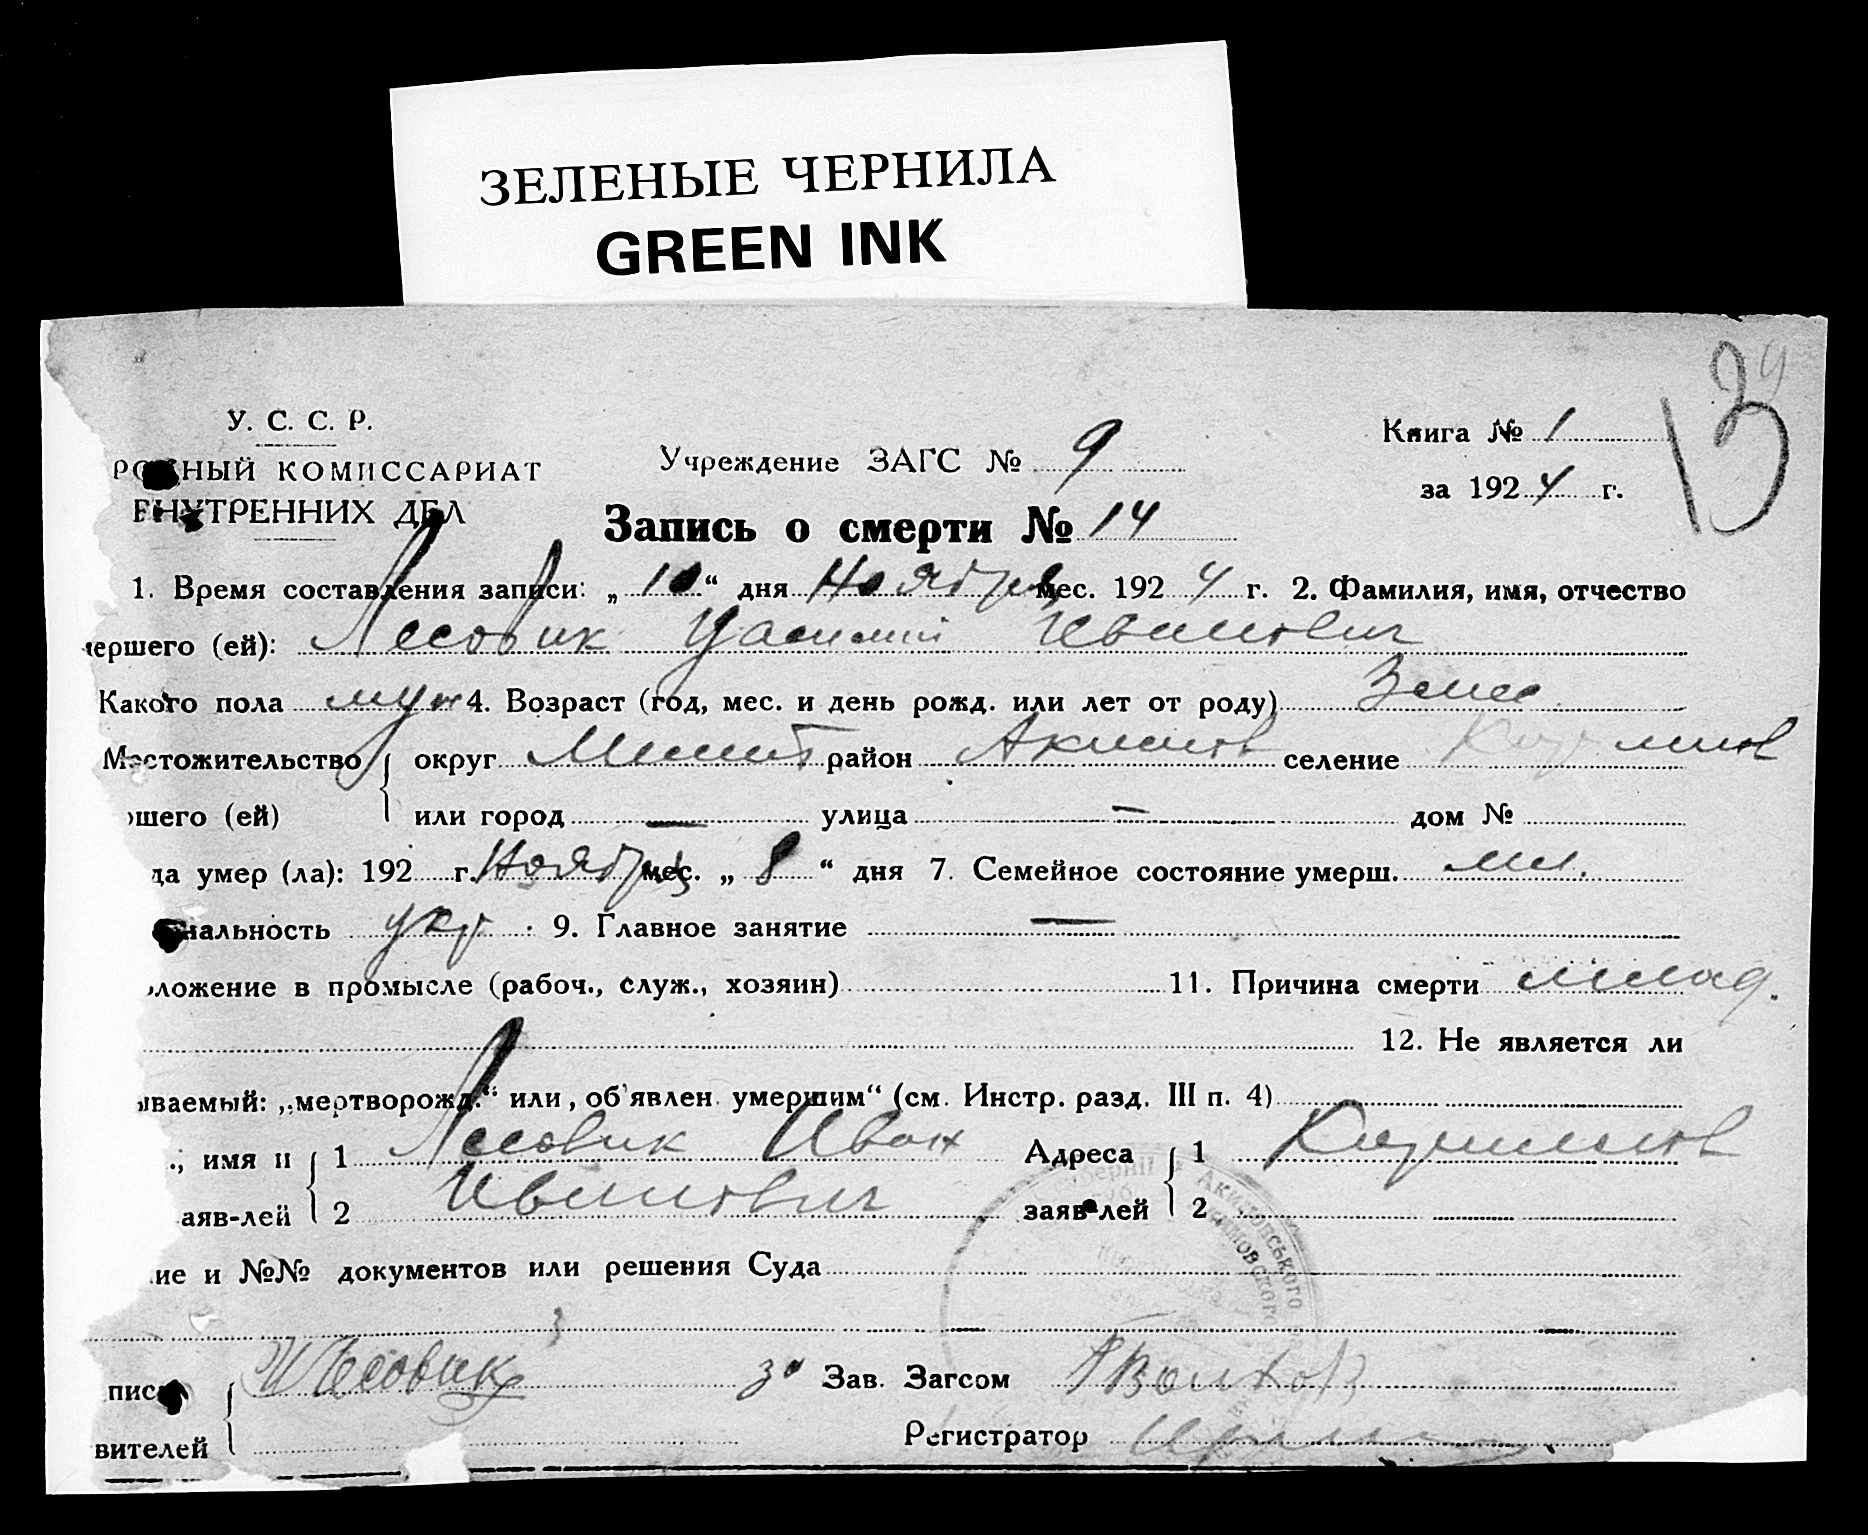 ЗЕЛЕНЫЕ ЧЕРНИЛА
GREEN INK
13
У. С. С. Р.
РОДНЫЙ КОМИССАРИАТ
ВНУТРЕННИХ ДЕЛ
Учреждение ЗАГС № 9
Книга № 1
за 1924 г.
Запись о смерти № 14
1. Время составления записи: „ 10 “ дня Ноября мес. 1924 г. 2. Фамилия, имя, отчество
мершего (ей): Лесовик Иванович
Какого пола муж 4. Возраст (год, мес. и день рожд. или лет от роду) 3 мес
Местожительство округ Мелит район Акимов селение
ршего (ей) или город — улица — дом №
да умер (ла): 192 г. Ноября мес. „ 8 “ дня 7. Семейное состояние умерш.
нальность укр. 9. Главное занятие —
оложение в промысле (рабоч., служ., хозяин) 11. Причина смерти млад.
12. Не является ли
ываемый: „мертворожд.“ или „об'явлен умершим“ (см. Инстр. разд. III п. 4)
., имя и 1 Лесовик Иван Адреса 1
аяв-лей 2 Иванович заяв-лей 2
ие и №№ документов или решения Суда
писи Лесовик За Зав. Загсом Волков
вителей Регистратор
АКИМОВСЬКОГО
АКИМОВСКОГО